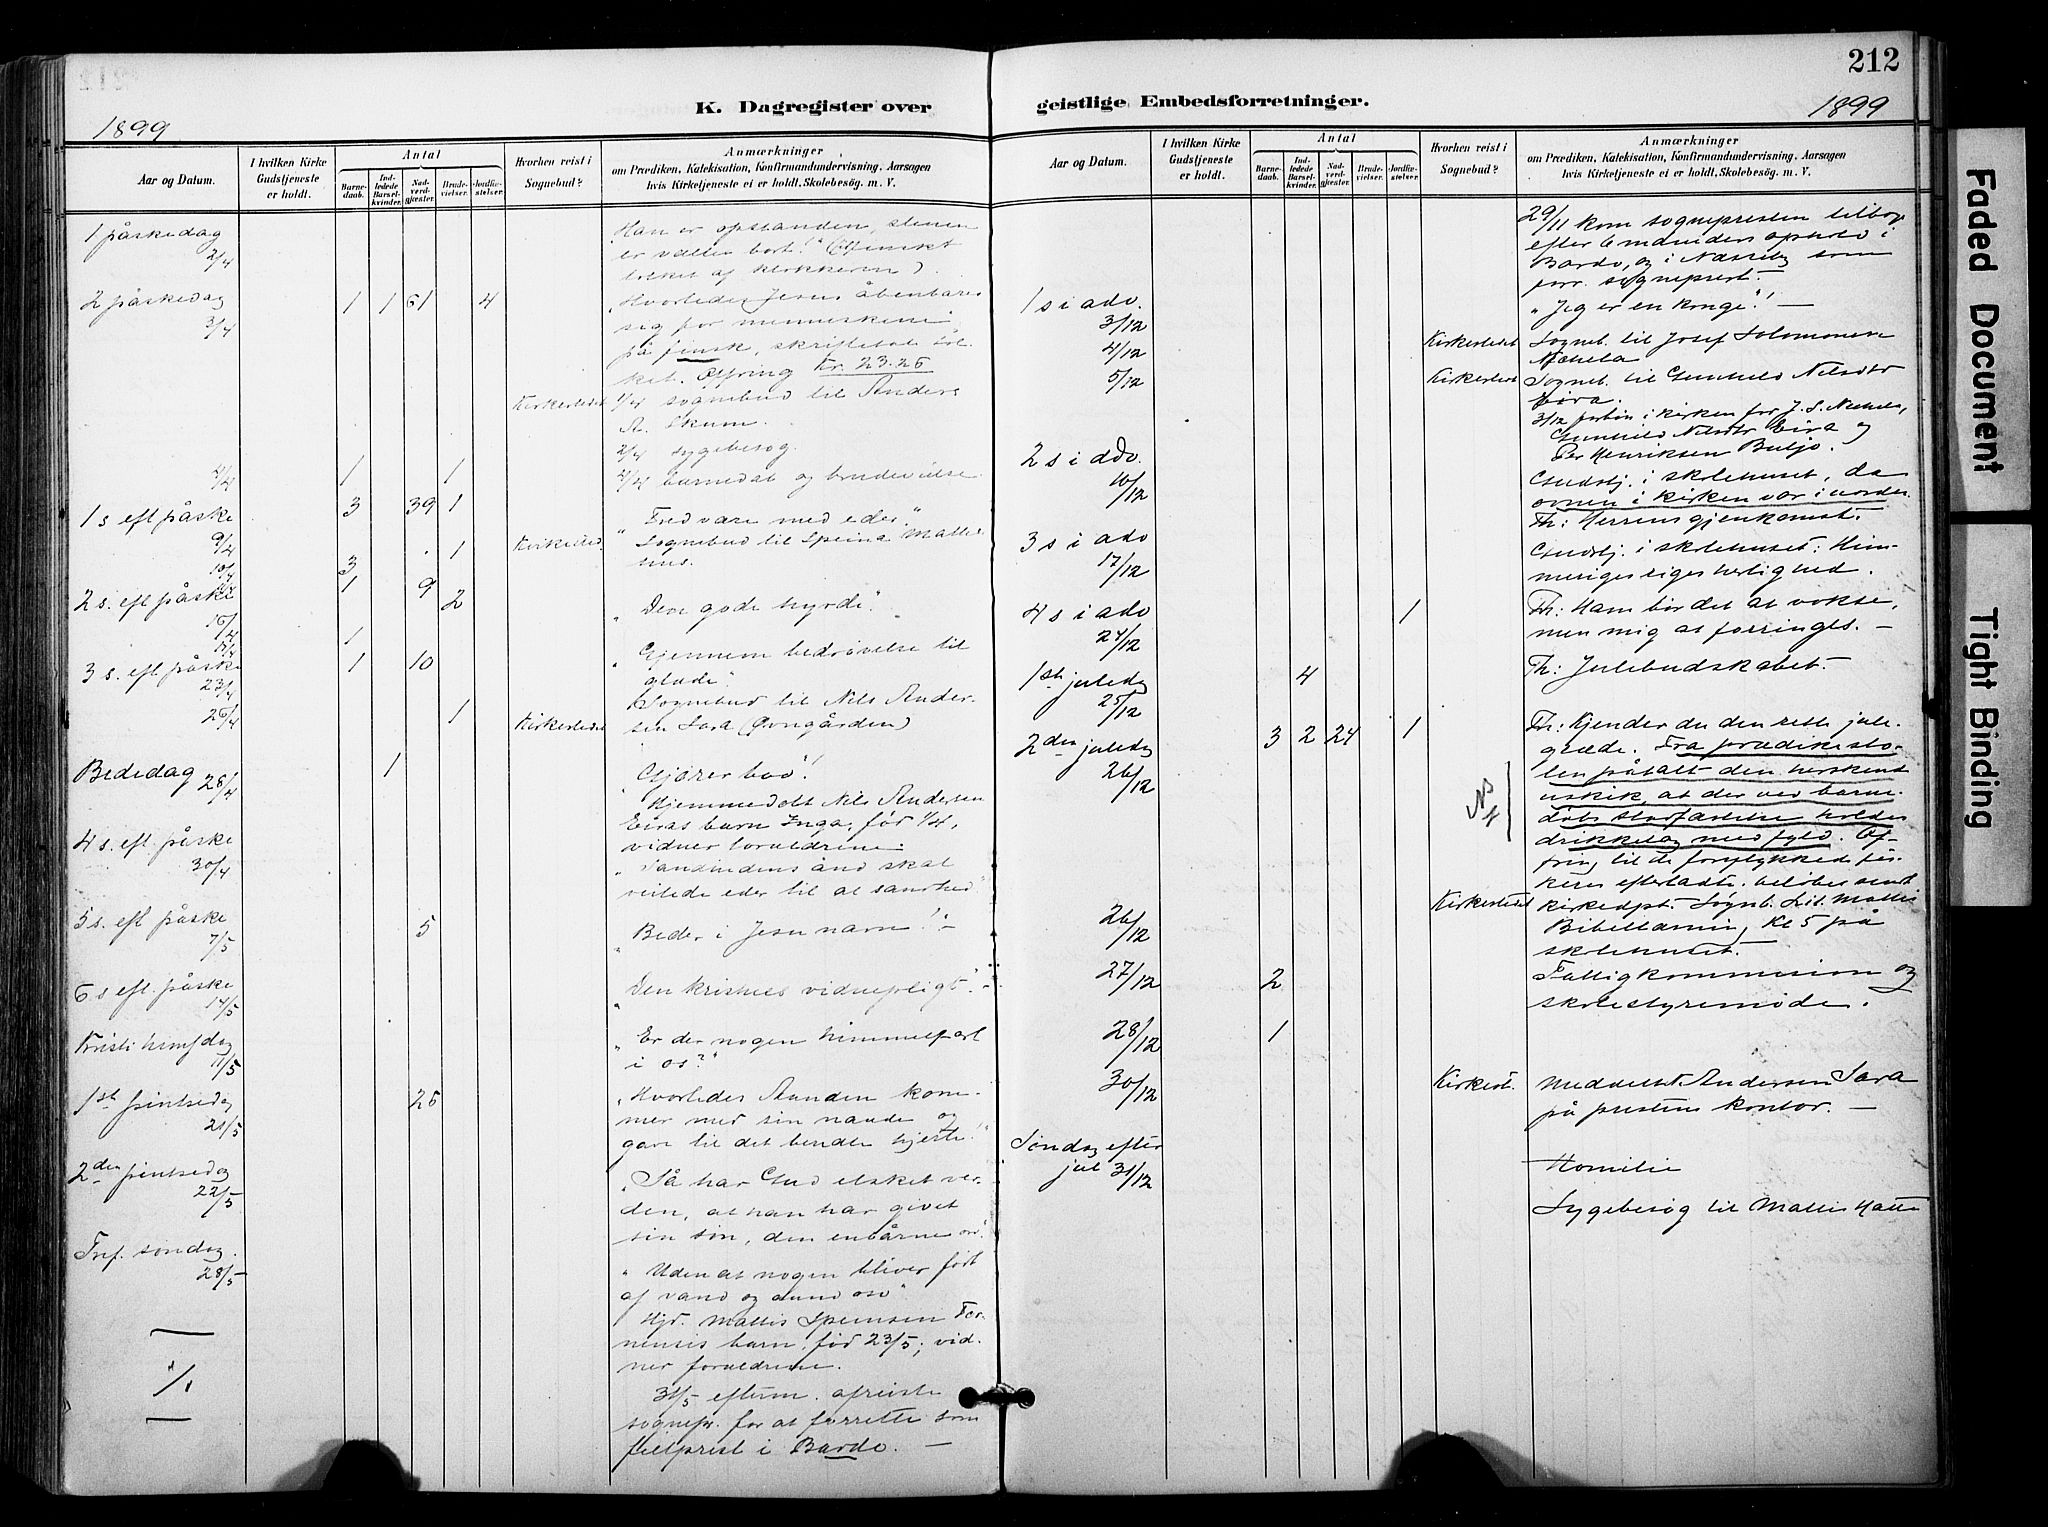 212
K. Dagregister over
geistlige Embedsforretninger.
1899
1899
Aar og Datum.
I hvilken Kirke
Gudstjeneste
er holdt.
Antal
Barne-
daab.
Ind-
ledede
Barsel-
kvinder.
Nad-
verd-
gjæster.
Brude-
vielser.
Jordfæ-
stelser.
Hvorhen reist i
Sognebud?
Anmærkninger
om Prædiken, Katekisation, Konfirmandundervisning, Aarsagen
hvis Kirketjeneste ei er holdt, Skolebesög. m. V.
1 påskedag
2/4
"Han er opstanden, stenen
er væltet bort!"
tolket af kirkkeren).
2 påskedag
3/4
1 1 61 4
"Hvorledes Jesus åbenbarer
sig for menneskene"
på finsk, skriftetale tol-
ket. Offring Kr. 23.26
Kirkestedet
1/4 sognebud til Anders
A. Skum.
2/4 sygebesøg.
4/4
1 1
4/4 barnedåb og brudevielse
1 s. eft påske
9/4
3 39 1
"Fred være med eder".
Kirkested.
1
Sognebud til Speina Mattis
hus.
10/4
3
2 s. eft. påske
16/4
1 9 2
"Den gode hyrde".
17/4
1
3 s. eft påske
23/4
1 10
"Gjennem bedrøvelse til
glæde"
26/4
1
Kirkestedet
Sognebud til Nils Ander-
sen Sara (Øvngården)
Bededag 28/4
1
"Gjører bod"!
Hjemmedøbt Nils Andersen
Eiras barn Inga, før 1/4,
vidner forældrene.
4 s. eft. påske
30/4
"Sandhedens ånd skal
veilede eder til al sandhed"
5 s. eft påske
7/5
5
"Beder i Jesu navn"! -
6 s eft. påske
14/5
"Den kristnes vidnepligt". -
Kristi himf dag
11/5
"Er der nogen himmelfart
i os?"
1ste pintsedag
21/5
26
"Hvorledes Aanden kom-
mer med sin naade og
gave til det bendte hjerte!"
2den pintsedag
22/5
"Så har Gud elsket ver-
den, at han har givet
sin søn, den enbårne osv."
Tref. søndag.
28/5
"Uden at nogen bliver født
af vand og aand osv"
Hjd. Mattis Speinsen Tor-
nensis barn, før 23/5; vid-
ner forældrene.
31/5 efterm. afreiste
sognepr. for at forrette som
feltprest i Bardo. —
Aar og Datum.
I hvilken Kirke
Gudstjeneste
er holdt.
Antal
Barne-
daab.
Ind-
ledede
Barsel-
kvinder.
Nad-
verd-
gjæster.
Brude-
vielser.
Jordfæ-
stelser.
Hvorhen reist i
Sognebud?
Anmærkninger
om Prædiken, Katekisation, Konfirmandundervisning, Aarsagen
hvis Kirketjeneste ei er holdt, Skolebesög. m. V.
29/11 kom sognepresten tilbage
efter 6 måneders ophold i
Bardo, og i Næsseby som
forr. sogneprest.
1 s i adv.
3/12
"Jeg er en konge"! —
4/12
Kirkestedet
Sogneb. til Josef Salomonsen
Nækela
5/12
Kirkestedet
Sogneb. til Gunhild Nilsdtr
Eira.
3/12 forbøn i kirken for J. S. Nækela,
Gunhild Nilsdtr Eira og
Per Henriksen Buljo.
2 s i adv.
10/12
Gudstj. i skolehuset, da
ovnen i kirken var i uorden
Th: Herrens gjenkomst.
3 s i adv
17/12
Gudstj. i skolehuset: Him-
meriges riges herlighed.
4 s i adv
24/12
1
Th: Ham bør det at vokse,
men mig at forringes. —
1ste juledag
25/12
4
Th: Julebudskabet. —
2den juledag
26/12
3 2 24 1
NB
Th: Kjender du den rette jule-
glæde. Fra prædikesto-
len påtalt den herskende
uskik, at der ved barne-
dåbs holdes
drikkelag med fyld. Of-
fring til de forulykkede fis-
keres efterladte. beløbet sendt
kirkedpt. Sogneb. Lit. Mattis
26/12
Kirkestedet
Bibellæsning Kl 5 på
skolehuset.
27/12
2
Fattigkommision og
skolestyremøde.
28/12
1
30/12
Kirkest.
Meddelt Andersen Sara
på prestens kontor. —
Søndag efter
jul 31/12
Homilie
Sygebesøg til Mattis Hætta
Faded Document
Tight Binding